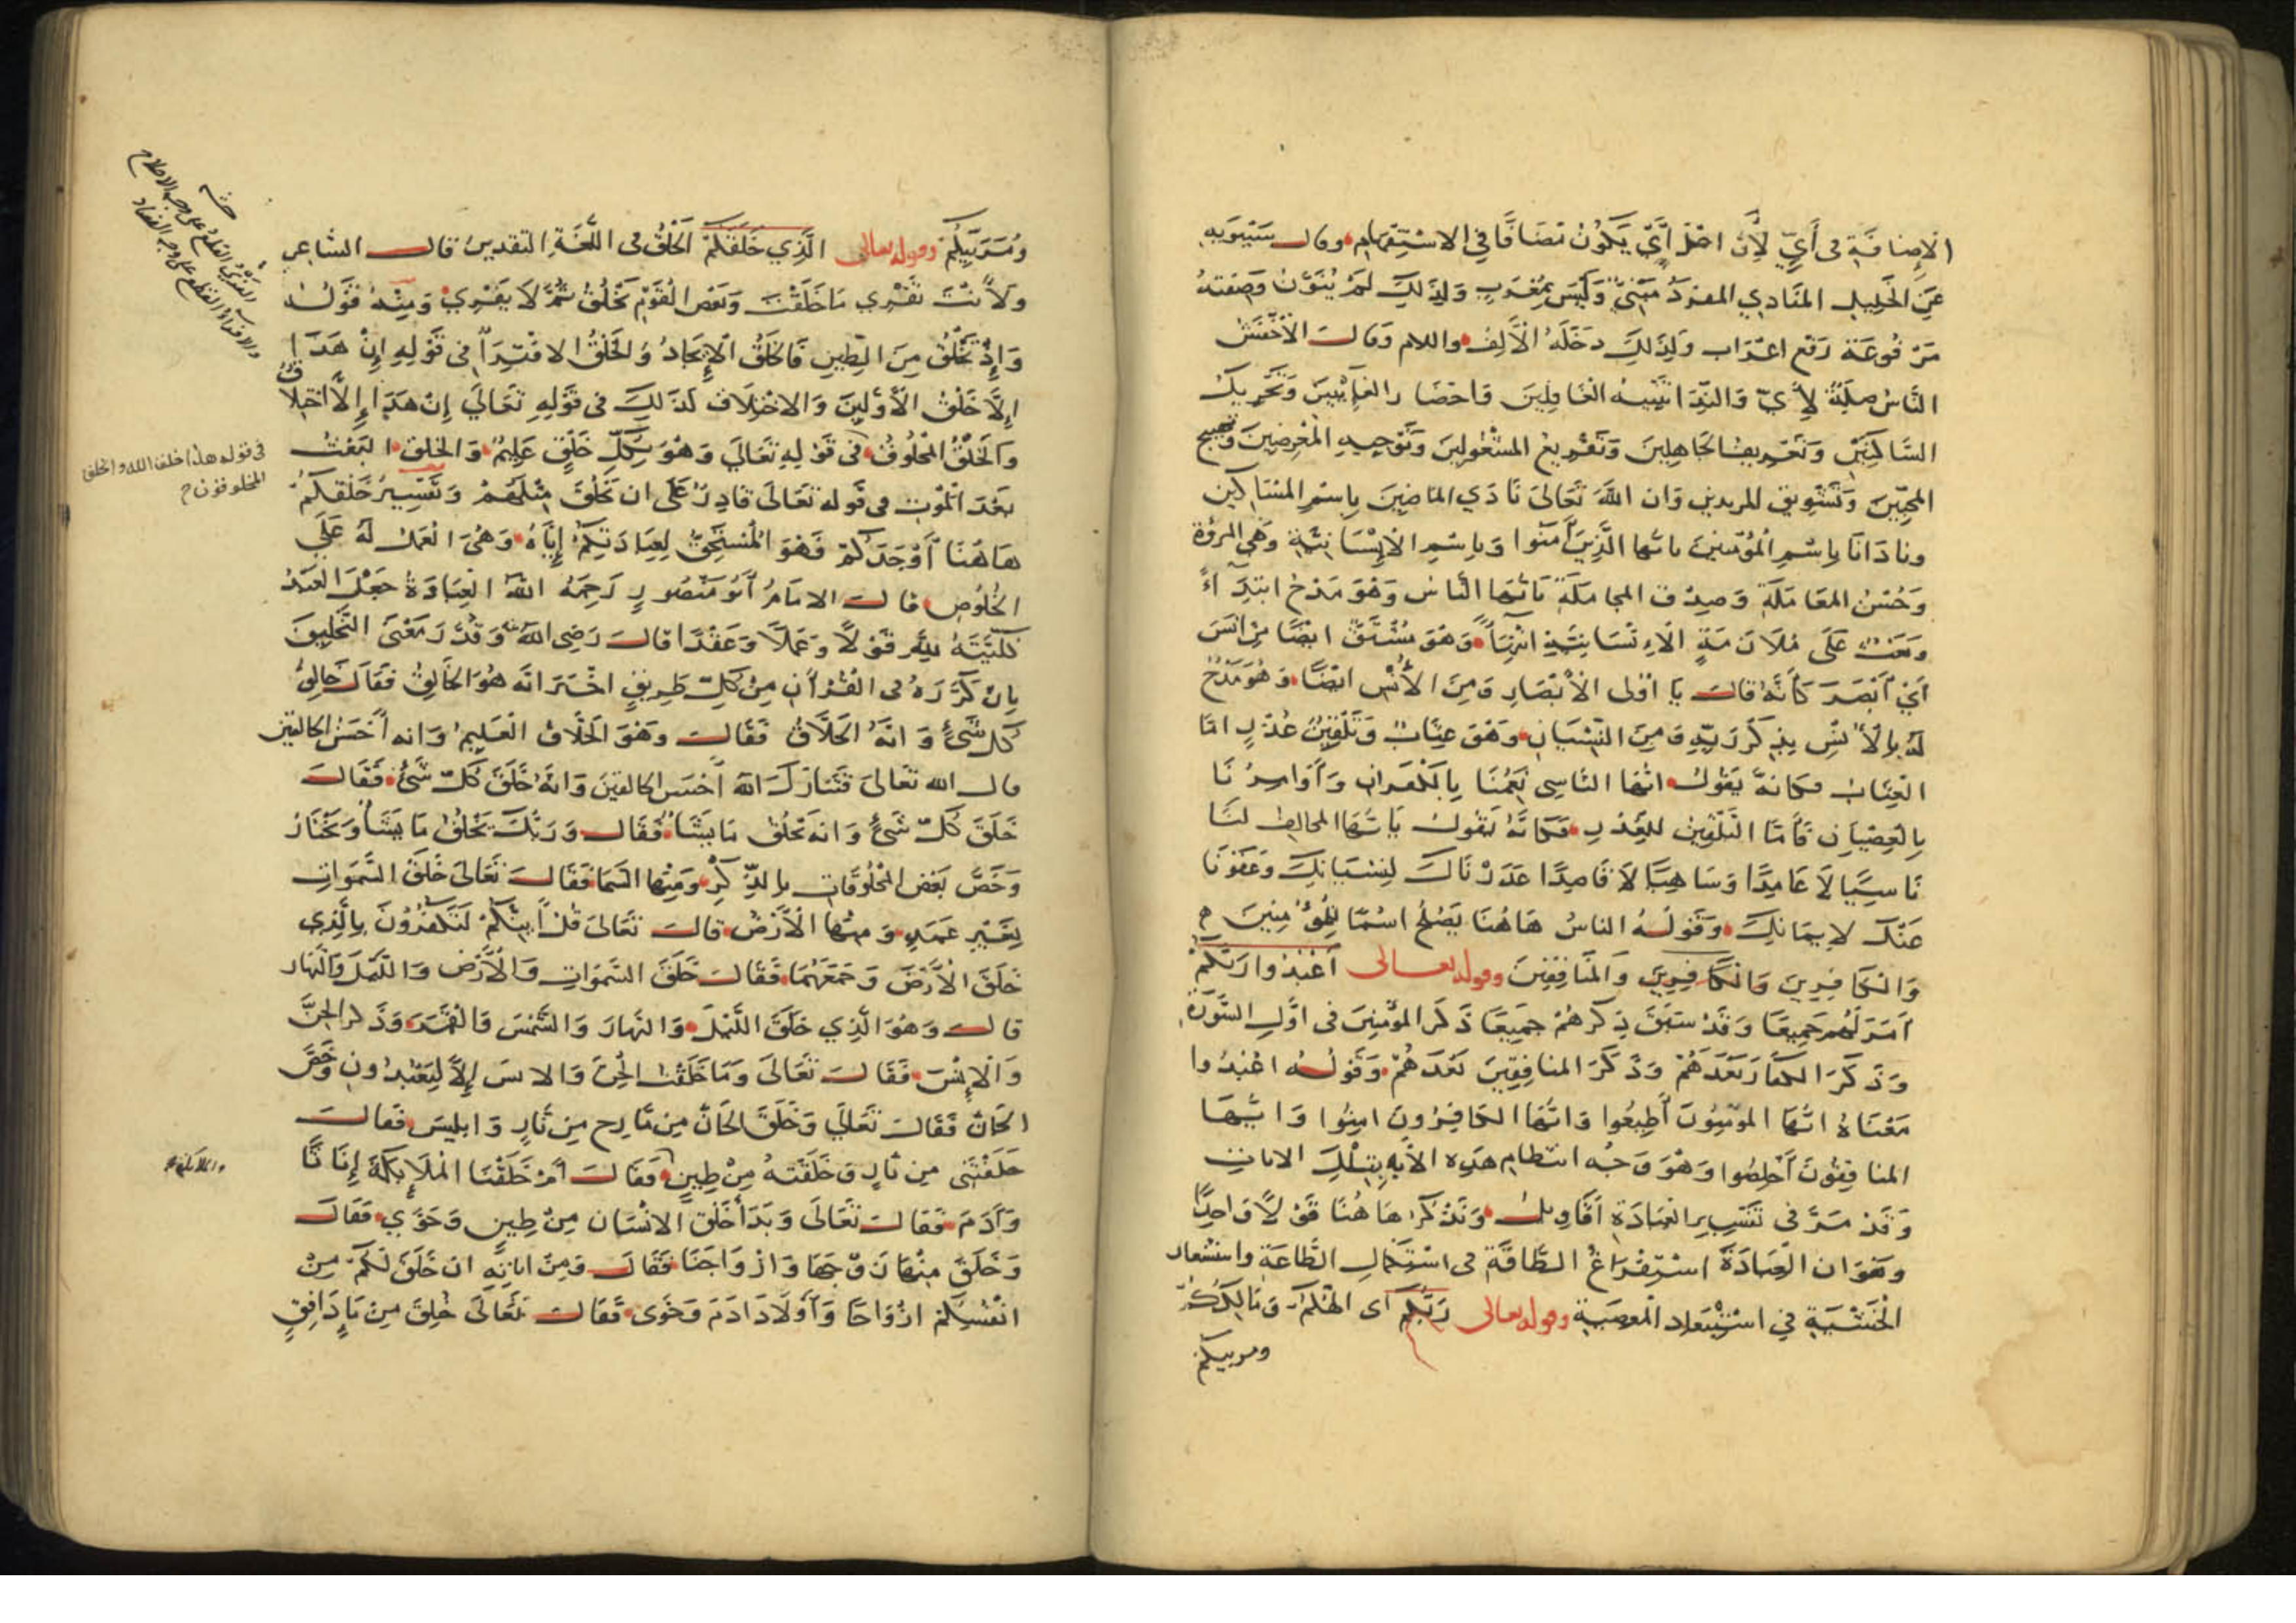 الإضافة في أي لأن اصل أي يكون مضافا في الاستفهام وقال سيبويه
عن الخليل المنادي المفرد مبني وليس بمعرب ولذلك لم ينون وصفته
مرفوعة رفع اعراب ولذلك دخله الألف واللام وقال الأخفش
الناس صلة لأي والندا تنبيه الغافلين واحضار الغائبين وتحريك
الساكنين وتعريف الجاهلين وتفريغ المشغولين وتوجيه المعرضين وتهييج
المحبين وتشويق المريدين وان الله تعالى نادي الماضين باسم المساكين
ونادانا باسم المؤمنين يا ايها الذين آمنوا وباسم الإنسانية وهي المروة
وحسن المعاملة وصدق المجاملة يا ايها الناس وهو مدح ابتداء
وبعث على ملازمة الإنسانية انتهاء وهو مشتق ايضا من انس
أي أبصر كأنه قال يا اولى الأبصار ومن الأنس ايضا وهو مدح
له بالأنس بذكر ربه ومن النسيان وهو عتاب وتلقين عذر اما
العتاب فكانه يقول ايها الناسي نعمنا بالكفران وأوامرنا
بالعصيان فأما التلقين للعذر فكانه يقول يا ايها المخالف لنا
ناسيا لا عامدا وساهيا لا قاصدا عذرناك لنسيانك وعفونا
عنك لايمانك وقوله الناس هاهنا يصلح اسما للمؤمنين
والكافرين والكافرين والمنافقين وقوله تعالى أعبدوا ربكم
امر لهم جميعا وقد سبق ذكرهم جميعا ذكر المؤمنين في اول السورة
وذكر الكفار بعدهم وذكر المنافقين بعدهم وقوله اعبدوا
معناه ايها المؤمنون أطيعوا وايها الكافرون امنوا وايها
المنافقون أخلصوا وهو وجه انتظام هذه الأيه بتلك الايات
وقد مر في تفسير العبادة أقاويل ونذكر هاهنا قولا واحدا
وهو ان العبادة استفراغ الطاقة في استكمال الطاعة واستشعار
الخشية في استبعاد المعصية وقوله تعالى ربكم اى الهكم ومالككم
ومربيكم
ومربيكم وقوله تعالى الذي خلقكم الخلق في اللغة التقدير قال الشاعر
ولأنت تفري ما خلقت وبعض القوم يخلق ثم لا يفري ومنه قوله
وإذ تخلق من الطين فالخلق الإيجاد والخلق الافتراء في قوله إن هذا
إلا خلق الأولين والاختلاف كذلك في قوله تعالي إن هذا إلا اختلاق
والخلق المخلوق في قوله تعالي وهو بكل خلق عليم والخلق البعث
بعد الموت في قوله تعالى قادر على ان يخلق مثلهم وتفسير خلقكم
هاهنا أوجدكم فهو المستحق لعبادتكم إياه وهي العمل له على
الخلوص قال الامام أبو منصور رحمه الله العبادة جعل العبد
كليته لله قولا وعملا وعقدا قال رضي الله عنه وقدر معنى التخليق
بان كرره في القرأن من كل طريق اخبر انه هو الخالق فقال خالق
كل شئ وانه الخلاق فقال وهو الخلاق العليم وانه أحسن الخالقين
قال الله تعالى فتبارك الله أحسن الخالقين وانه خلق كل شئ فقال
خلق كل شئ وانه يخلق ما يشاء فقال وربك يخلق ما يشاء ويختار
وخص بعض المخلوقات بالذكر ومنها السما فقال تعالى خلق السموات
بغير عمد ومنها الأرض قال تعالى قل أينكم لتكفرون بالذي
خلق الأرض وجمعهما فقال خلق السموات والأرض والليل والنهار
قال وهو الذي خلق الليل والنهار والشمس والقمر وذكر الجن
والإنس فقال تعالى وما خلقت الجن والانس إلا ليعبدون وخص
الجان فقال تعالي وخلق الجان من مارج من نار وابليس فقال
خلقتني من نار وخلقته من طين فقال أم خلقنا الملايكة إناثا
وآدم فقال تعالى وبدأ خلق الانسان من طين وحوي فقال
وخلق منها زوجها وازواجنا فقال ومن اياته ان خلق لكم من
انفسكم ازواجا وأولاد ادم وحوى فقال تعالى خلق من ماء دافق
الفري القطع على وجه الاصلاح
والافراء القطع على وجه الفساد
في قوله هذا خلق الله والخلق
المخلوقون
والملائكة